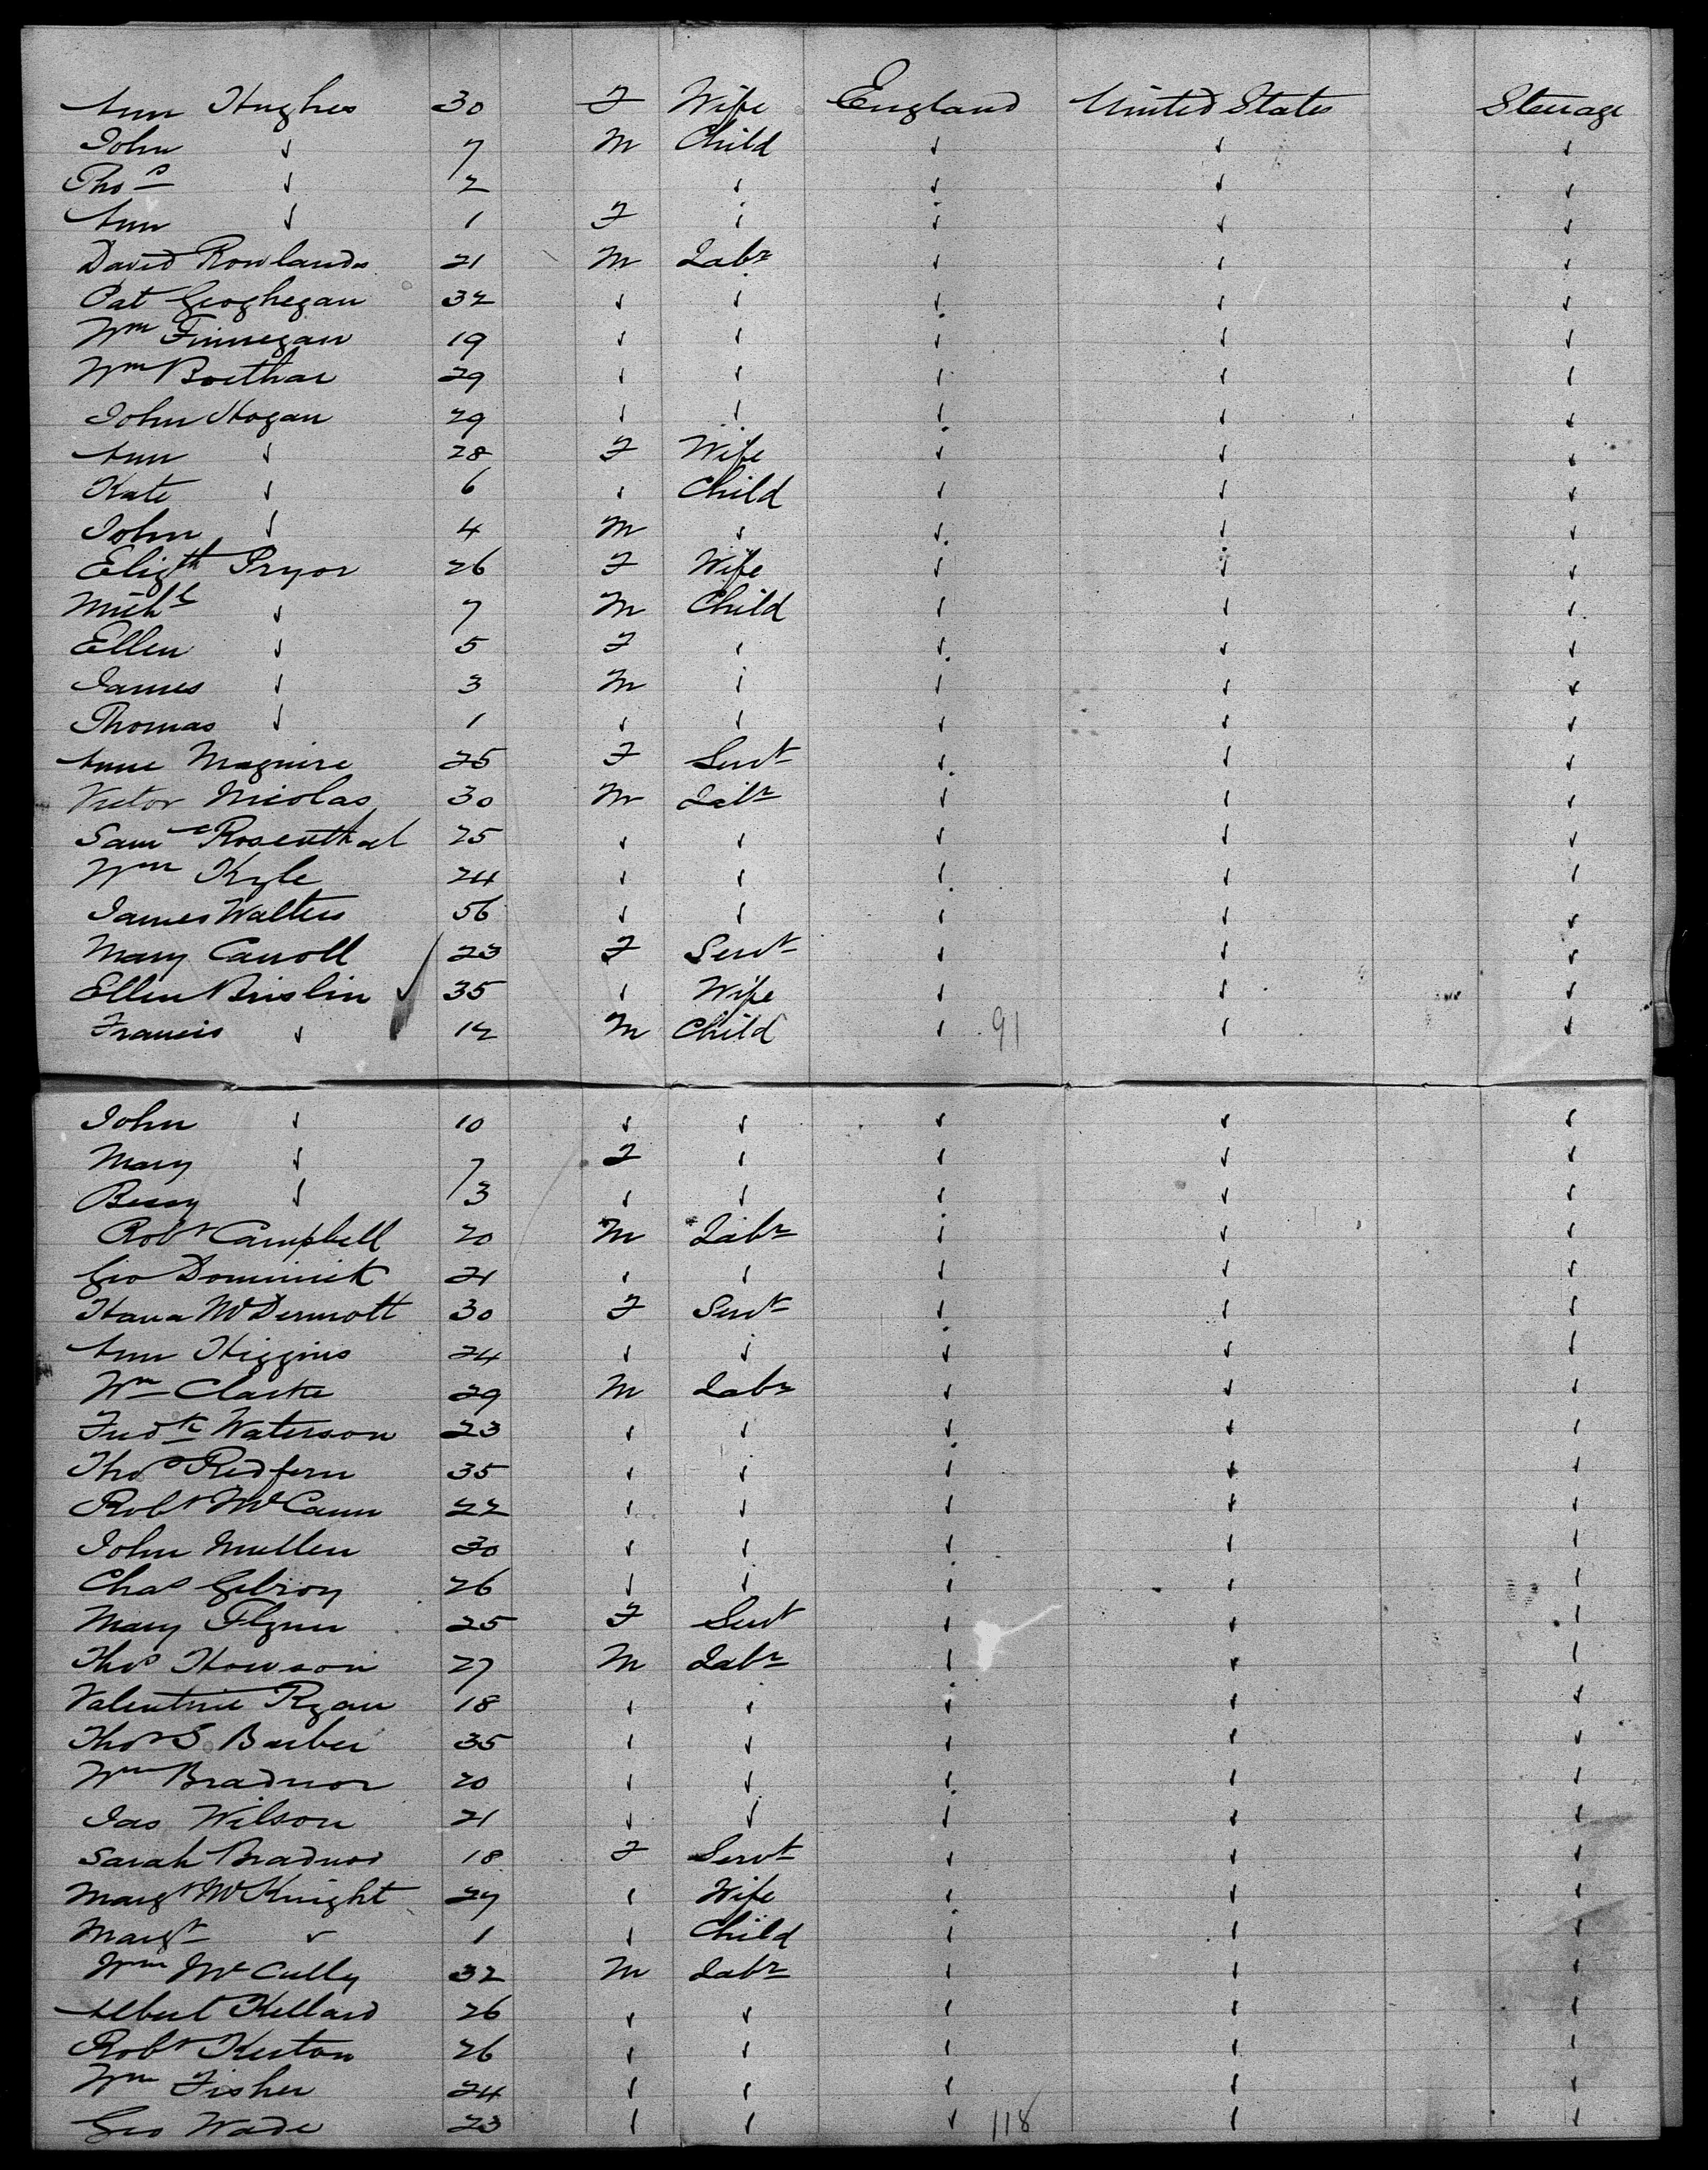 Ann Hughes 30 F Wife England United States Steerage
John ✓ 7 M Child ✓ ✓ ✓
Thos ✓ 2 ✓ ✓ ✓ ✓
Ann ✓ 1 F ✓ ✓ ✓ ✓
David Rowlands 21 M Labr ✓ ✓ ✓
Pat Geoghegan 32 ✓ ✓ ✓ ✓ ✓
Wm Finnegan 19 ✓ ✓ ✓ ✓ ✓
Wm 29 ✓ ✓ ✓ ✓ ✓
John Hogan 29 ✓ ✓ ✓ ✓ ✓
Ann ✓ 28 F Wife ✓ ✓ ✓
Kate ✓ 6 ✓ Child ✓ ✓ ✓
John ✓ 4 M ✓ ✓ ✓ ✓
Elizth Pryor 26 F Wife ✓ ✓ ✓
Michl ✓ 7 M Child ✓ ✓ ✓
Ellen ✓ 5 F ✓ ✓ ✓ ✓
James ✓ 3 M ✓ ✓ ✓ ✓
Thomas ✓ 1 ✓ ✓ ✓ ✓ ✓
Anne Maguire 25 F Servt ✓ ✓ ✓
Victor Nicolas 30 M Labr ✓ ✓ ✓
Saml Rosenthal 25 ✓ ✓ ✓ ✓ ✓
Wm Kyle 24 ✓ ✓ ✓ ✓ ✓
James Walters 56 ✓ ✓ ✓ ✓ ✓
Mary Carroll 23 F Servt ✓ ✓ ✓
Ellen Brislin ✓ 35 ✓ Wife ✓ ✓ ✓
Francis ✓ 12 M Child ✓ 91 ✓ ✓
John ✓ 10 ✓ ✓ ✓ ✓ ✓
Mary ✓ 7 F ✓ ✓ ✓ ✓
Bessy ✓ 3 ✓ ✓ ✓ ✓ ✓
Robt Campbell 20 M Labr ✓ ✓ ✓
Geo Dominick 21 ✓ ✓ ✓ ✓ ✓
Hana McDermott 30 F Servt ✓ ✓ ✓
Ann Higgins 24 ✓ ✓ ✓ ✓ ✓
Wm Clarke 29 M Labr ✓ ✓ ✓
Fredk Waterson 23 ✓ ✓ ✓ ✓ ✓
Thos Redfern 35 ✓ ✓ ✓ ✓ ✓
Robt McCann 22 ✓ ✓ ✓ ✓ ✓
John Mullen 30 ✓ ✓ ✓ ✓ ✓
Chas Gilroy 26 ✓ ✓ ✓ ✓ ✓
Mary Flynn 25 F Servt ✓ ✓ ✓
Thos Howson 27 M Labr ✓ ✓ ✓
Valentine Ryan 18 ✓ ✓ ✓ ✓ ✓
Thos S Barber 35 ✓ ✓ ✓ ✓ ✓
Wm Bradnor 20 ✓ ✓ ✓ ✓ ✓
Jas Wilson 21 ✓ ✓ ✓ ✓ ✓
Sarah Bradnor 18 F Servt ✓ ✓ ✓
Margt McKnight 27 ✓ Wife ✓ ✓ ✓
Margt ✓ 1 ✓ Child ✓ ✓ ✓
Wm McCully 32 M Labr ✓ ✓ ✓
Albert Kellard 26 ✓ ✓ ✓ ✓ ✓
Robt 26 ✓ ✓ ✓ ✓ ✓
Wm Fisher 24 ✓ ✓ ✓ ✓ ✓
Geo Wade 23 ✓ ✓ ✓ 118 ✓ ✓